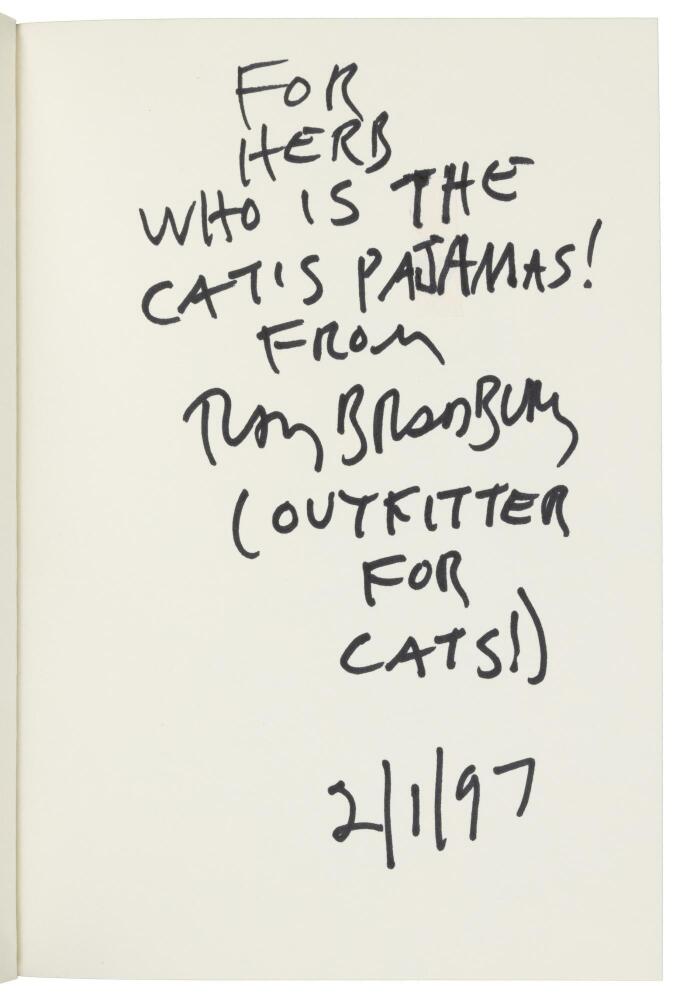 FOR
HERB
WHO IS THE
CAT'S PAJAMAS!
FROM
RAY BRADBURY
(OUTFITTER
FOR
CATS!)
2/1/97